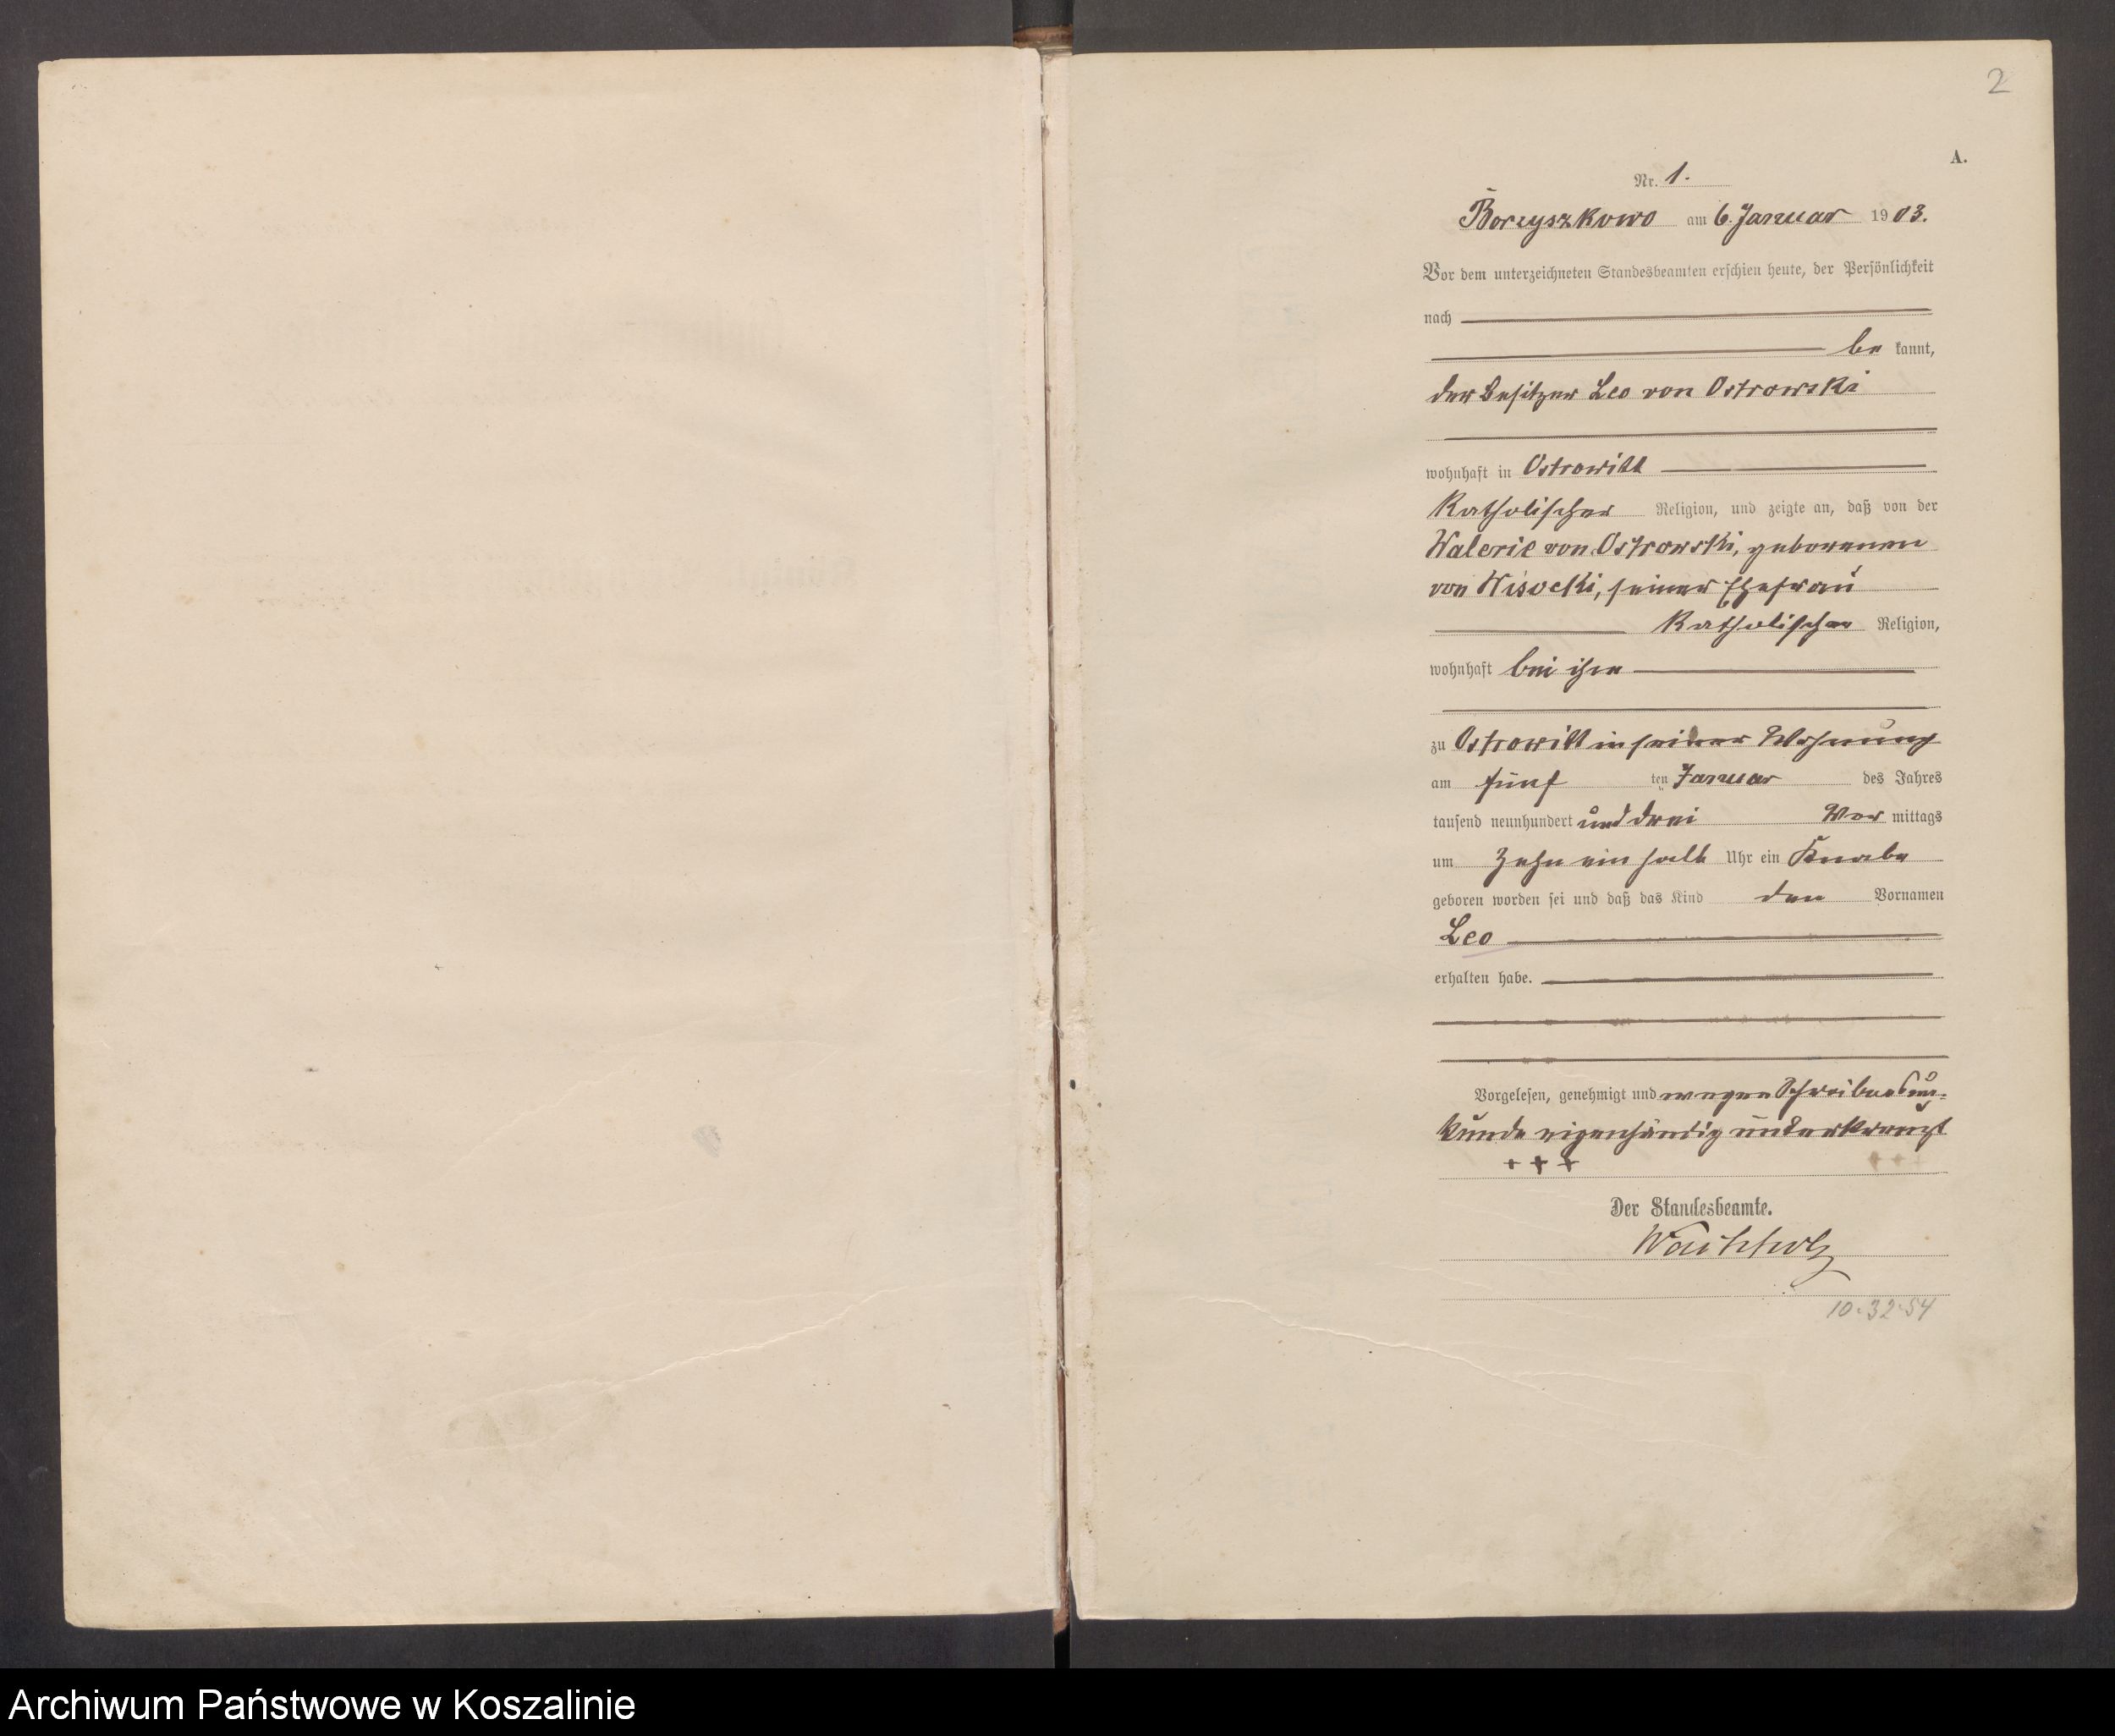 2
A.
Nr. 1.
Borzyszkowo am 6. Januar 1903.
Vor dem unterzeichneten Standesbeamten erschien heute, der Persönlichkeit
nach
be kannt,
der Besitzer Leo von Ostrowski
wohnhaft in Ostrowitt
katholischer Religion, und zeigte an, daß von der
Walerie von Ostrowski, geborenen
von Wisocki, seiner Ehefrau
katholischer Religion,
wohnhaft bei ihm
zu Ostrowitt in seiner Wohnung
am fünf ten Januar des Jahres
tausend neunhundert und drei Vor mittags
um zehn ein halb Uhr ein Knabe
geboren worden sei und daß das Kind den Vornamen
Leo
erhalten habe.
Vorgelesen, genehmigt und wegen Schreibensun-
kunde eigenhändig unterkreuzt
+ + +
Der Standesbeamte.
Wachholz
10.32.54
Archiwum Państwowe w Koszalinie